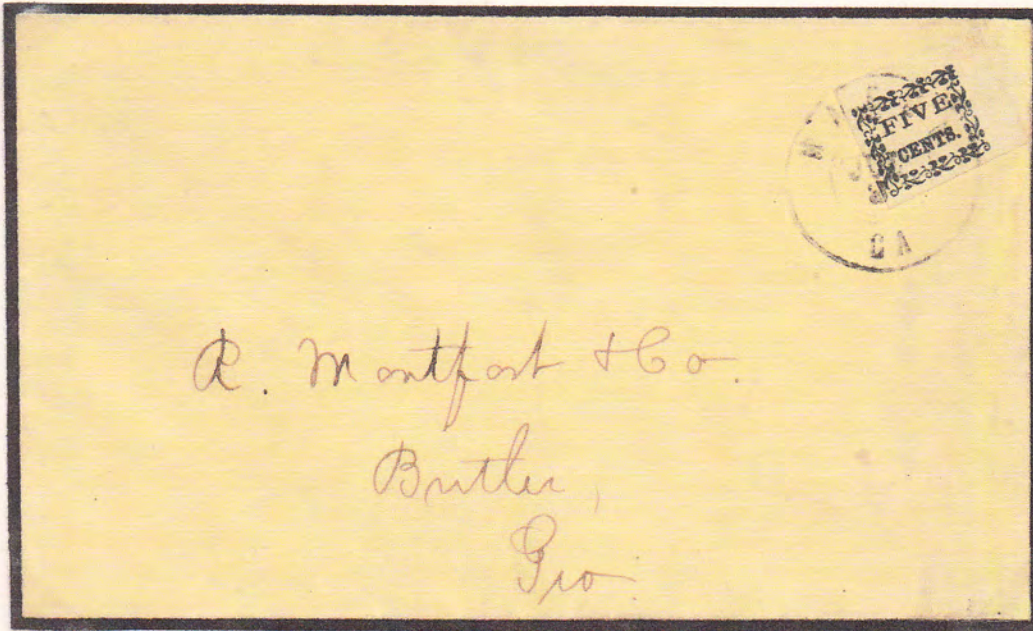 FIVE
CENTS.
GA
R. Montfort & Co.
Butler,
Geo